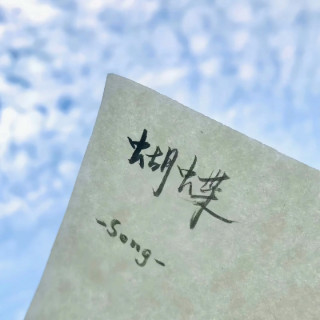 蝴蝶
-Song-